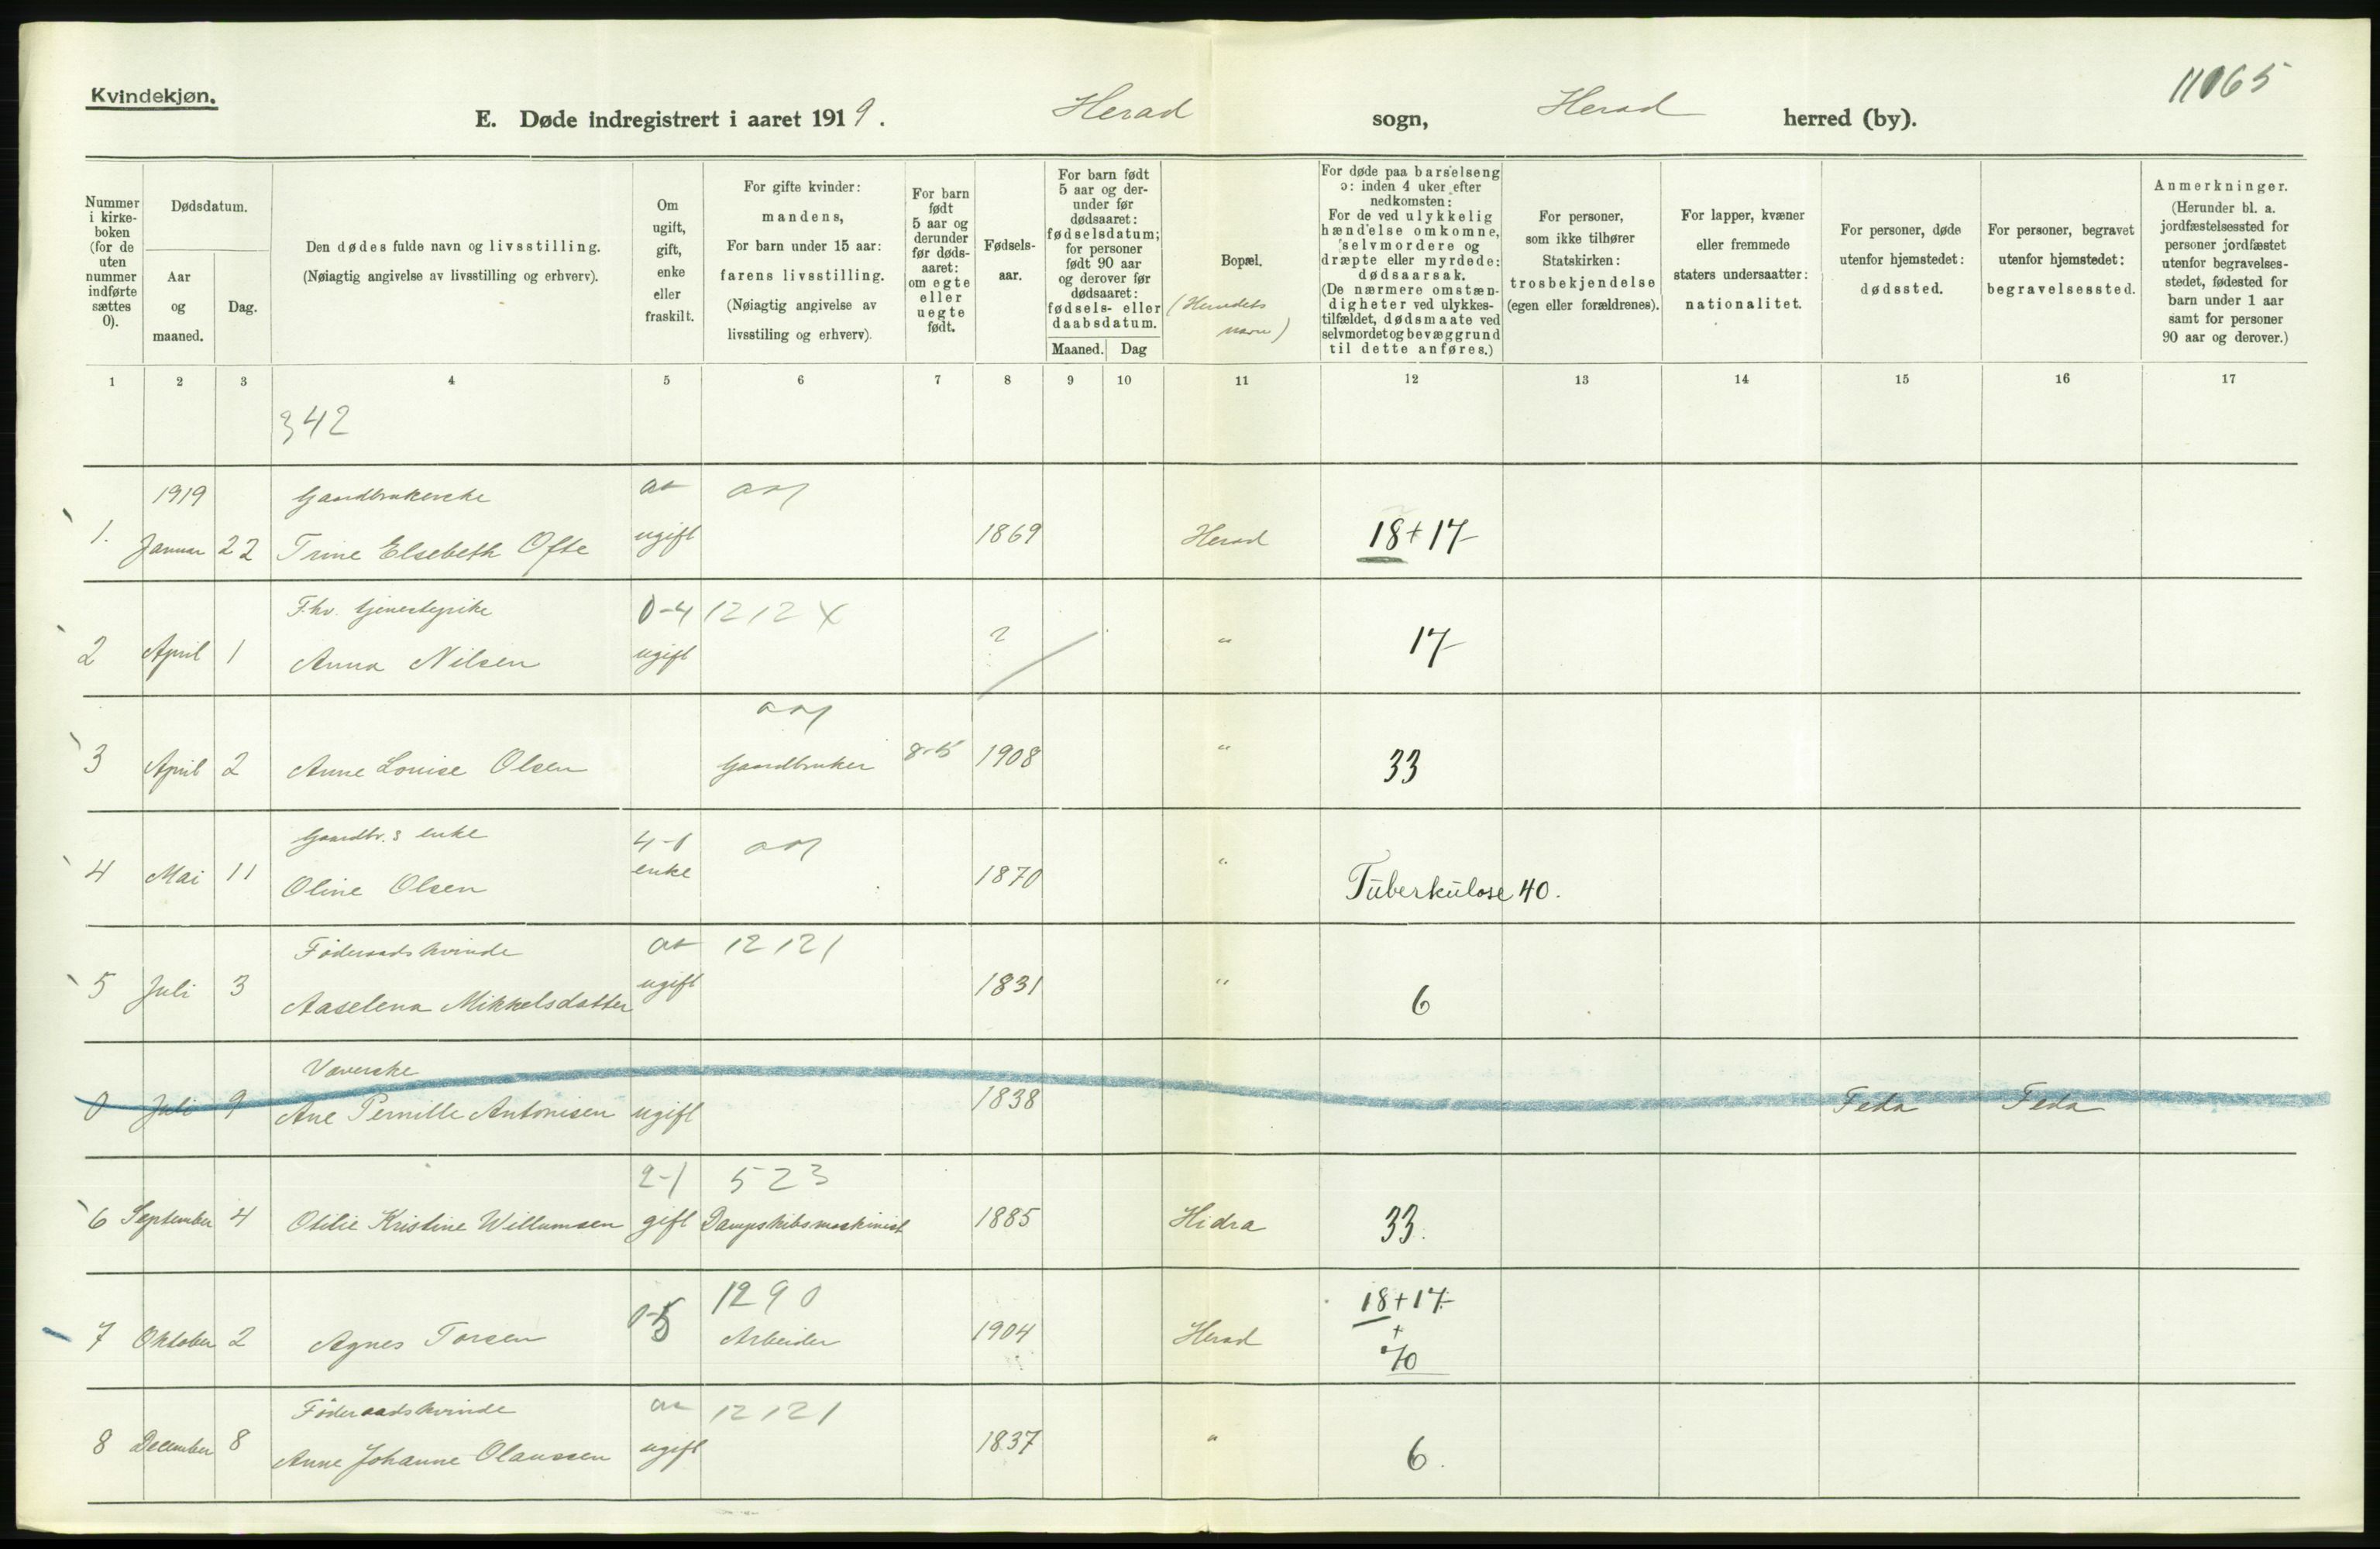 Kvindekjøn.
E. Døde indregistrert i aaret 1919. Herad sogn, Herad herred (by).
11065
Nummer i kirke-boken (for de uten nummer indførte sættes 0).
Dødsdatum.
Aar og maaned.
Dag.
Den dødes fulde navn og livsstilling.
(Nøiagtig angivelse av livsstilling og erhverv).
Om ugift, gift, enke eller fraskilt.
For gifte kvinder: mandens,
For barn under 15 aar: farens livsstilling.
(Nøiagtig angivelse av livsstiling og erhverv).
For barn født 5 aar og derunder før døds-aaret: om egte eller uegte født.
Fødsels-aar.
For barn født 5 aar og der-under før dødsaaret: fødselsdatum; for personer født 90 aar og derover før dødsaaret: fødsels- eller daabsdatum.
Maaned. Dag
Bopæl.
(Herredets navn)
For døde paa barselseng ɔ: inden 4 uker efter nedkomsten:
For de ved ulykkelig hændelse omkomne, selvmordere og dræpte eller myrdede: dødsaarsak.
(De nærmere omstæn-digheter ved ulykkes-tilfældet, dødsmaate ved selvmordet og bevæggrund til dette anføres.)
For personer, som ikke tilhører Statskirken: trosbekjendelse (egen eller forældrenes).
For lapper, kvæner eller fremmede staters undersaatter: nationalitet.
For personer, døde utenfor hjemstedet: dødssted.
For personer, begravet utenfor hjemstedet: begravelsessted.
Anmerkninger.
(Herunder bl. a. jordfæstelsessted for personer jordfæstet utenfor begravelses-stedet, fødested for barn under 1 aar samt for personer 90 aar og derover.)
1 2 3 4 5 6 7 8 9 10 11 12 13 14 15 16 17
342
1919 Gaardbrukerske
1. Januar 22 Trine Elsebeth Ofte ugift 1869 Herad 18+17
F.hv. tjenestepike 0-4 1212 X
2 April 1 Anna Nilsen ugift ? " 17
3 April 2 Anne Louise Olsen Gaardbruker 8-5 1908 " 33
Gaardbr.s enke 4-1
4 Mai 11 Oline Olsen enke 1870 " Tuberkulose 40.
Føderaadskvinde 12121
5 Juli 3 Aaselena Mikkelsdatter ugift 1831 " 6
Væverske
0 Juli 9 Ane Pernille Antonisen ugift 1838 Feda Feda
2-1 523
6 September 4 Otilie Kristine Willumsen gift Dampskibsmaskinist 1885 Hidra 33.
1290 18+17
7 Oktober 2 Agnes Torsen 0-5 Arbeider 1904 Herad + 70
Føderaadskvinde 12121
8 December 8 Anne Johanne Olaussen ugift 1837 " 6.